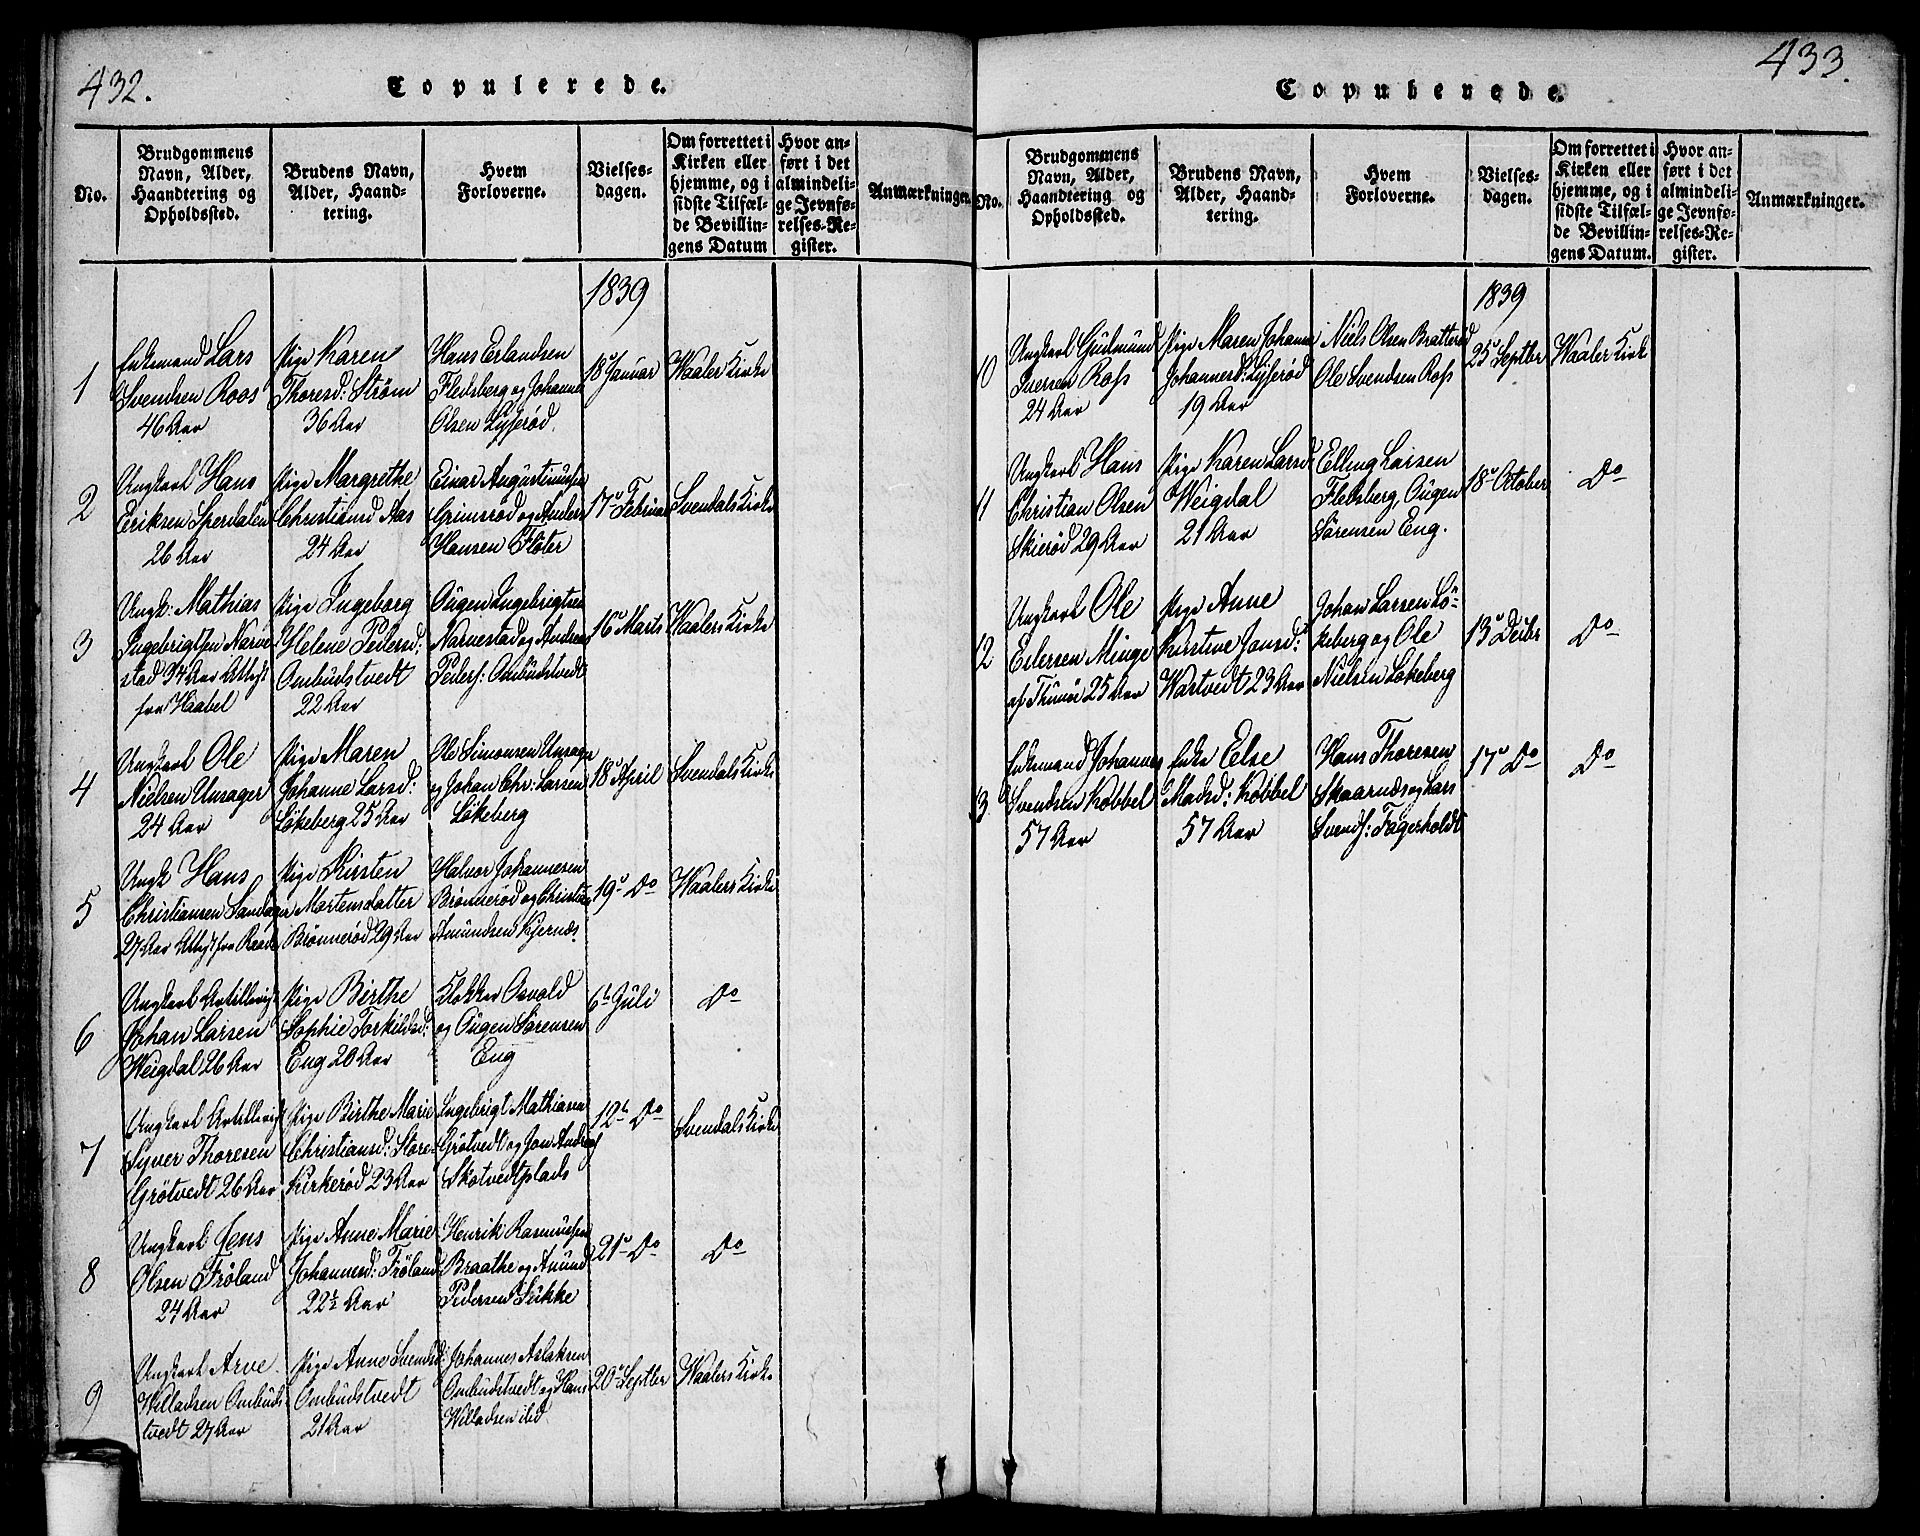 432.
Copulerede.
No.
Brudgommens
Navn, Alder,
Haandtering og
Opholdssted.
Brudens Navn,
Alder, Haand-
tering.
Hvem
Forloverne.
Vielses-
dagen.
Om forrettet i
Kirken eller
hjemme, og i
sidste Tilfæl-
de Bevillin-
gens Datum
Hvor an-
ført i det
almindeli-
ge Jevnfø-
relses-Re-
gister.
Anmærkninger.
1839
1
Enkemand Lars
Svendsen Roos
46 Aar
Pige Karen
Thoresd: Strøm
36 Aar
Hans Erlandsen
Fledsberg og Johannes
Olsen Lysserød.
18de Januar
Waaler Kirke
2
Ungkarl Hans
Eriksen Sperdalen
26 Aar
Pige Margrethe
Christiansd Aas
24 Aar
Einar Augustinusen
Grimsrød og Anders
Hansen Fløter
17de Februar
Svendals Kirke
3
Ungk: Mathias
Ingebrigtsen Narve
stad 34 Aar Attest
fra Haabel
Pige Ingeborg
Helene Pedersd:
Ombudstvedt
22 Aar
Ougen Ingebrigtsen
Narvestad og Anders
Peders: Ombudstvedt
16de Marts
Waalers Kirke
4
Ungkarl Ole
Nielsen Unsager
24 Aar
Pige Maren
Johanne Larsd:
Løkeberg 25 Aar
Ole Simonsen Unsager
og Johan Chr: Larsen
Løkeberg
18de April
Svendals Kirke
5
Ungk Hans
Christiansen Sandager
27 Aar Attest fra Raade
Pige Kirsten
Martensdatter
Brønnerød 29 Aar
Halvor Johannesen
Brønnerød og Christian
Amundsen Kjernæs
19de Do
Waalers Kirke
6
Ungkarl Artillerist
Johan Larsen
Weigdal 26 Aar
Pige Birthe
Sophie Torkildsd:
Eng 20 Aar
Klokker Osvold
og Ougen Sørensen
Eng
6te Juli
Do
7
Ungkarl Artillerist
Syver Thoresen
Grøtvedt 26 Aar
Pige Birthe Marie
Christiansd: Store
Kirkerød 23 Aar
Ingebrigt Mathiasen
Grøtvedt og Jon Andreas
Skotvedtplads
12te Do
Svendals Kirke
8
Ungkarl Jens
Olsen Frøland
24 Aar
Pige Anne Marie
Johannesd: Frøland
22½ Aar
Henrik Rasmussen
Braathe og Amund
Pedersen Sukke
21de Do
Do
9
Ungkarl Arve
Willadsen Ombuds
tvedt 27 Aar
Pige Anne Svendsd:
Ombudstvedt
21 Aar
Johannes Aslaksen
Ombudstvedt og Hans
Willadsen ibd
20de Septbr
Waalers Kirke
433.
Copulerede.
No.
Brudgommens
Navn, Alder,
Haandtering og
Opholdssted.
Brudens Navn,
Alder, Haand-
tering.
Hvem
Forloverne.
Vielses-
dagen.
Om forrettet i
Kirken eller
hjemme, og i
sidste Tilfæl-
de Bevillin-
gens Datum.
Hvor an-
ført i det
almindeli-
ge Jevnfø-
relses-Re-
gister.
Anmærkninger.
1839
10
Ungkarl Gulmund
Iversen Ross
24 Aar
Pige Maren Johanne
Johannesd: Lysserød
19 Aar
Niels Olsen Bratterød
Ole Svendsen Ross
25de Septbr
Waaler Kirke
11
Ungkarl Hans
Christian Olsen
Skierød 29 Aar
Pige Karen Larsd
Weigdal
21 Aar
Elling Larsen
Fledsberg, Ougen
Sørensen Eng.
18de October
Do
12
Ungkarl Ole
Eilersen Minge
af Thunøe 25 Aar
Pige Anne
Kirstine Jonsd:
Wartvedt 23 Aar
Johan Larsen Lö-
keberg og Ole
Nielsen Lökeberg
13de Decbr
Do
13
Enkemand Johannes
Svendsen Købbel
57 Aar
Enke Else
Madsd: Købbel
57 Aar
Hans Thoresen
Skaarnæs og Lars
Svends: Fagerholdt
17de Do
Do